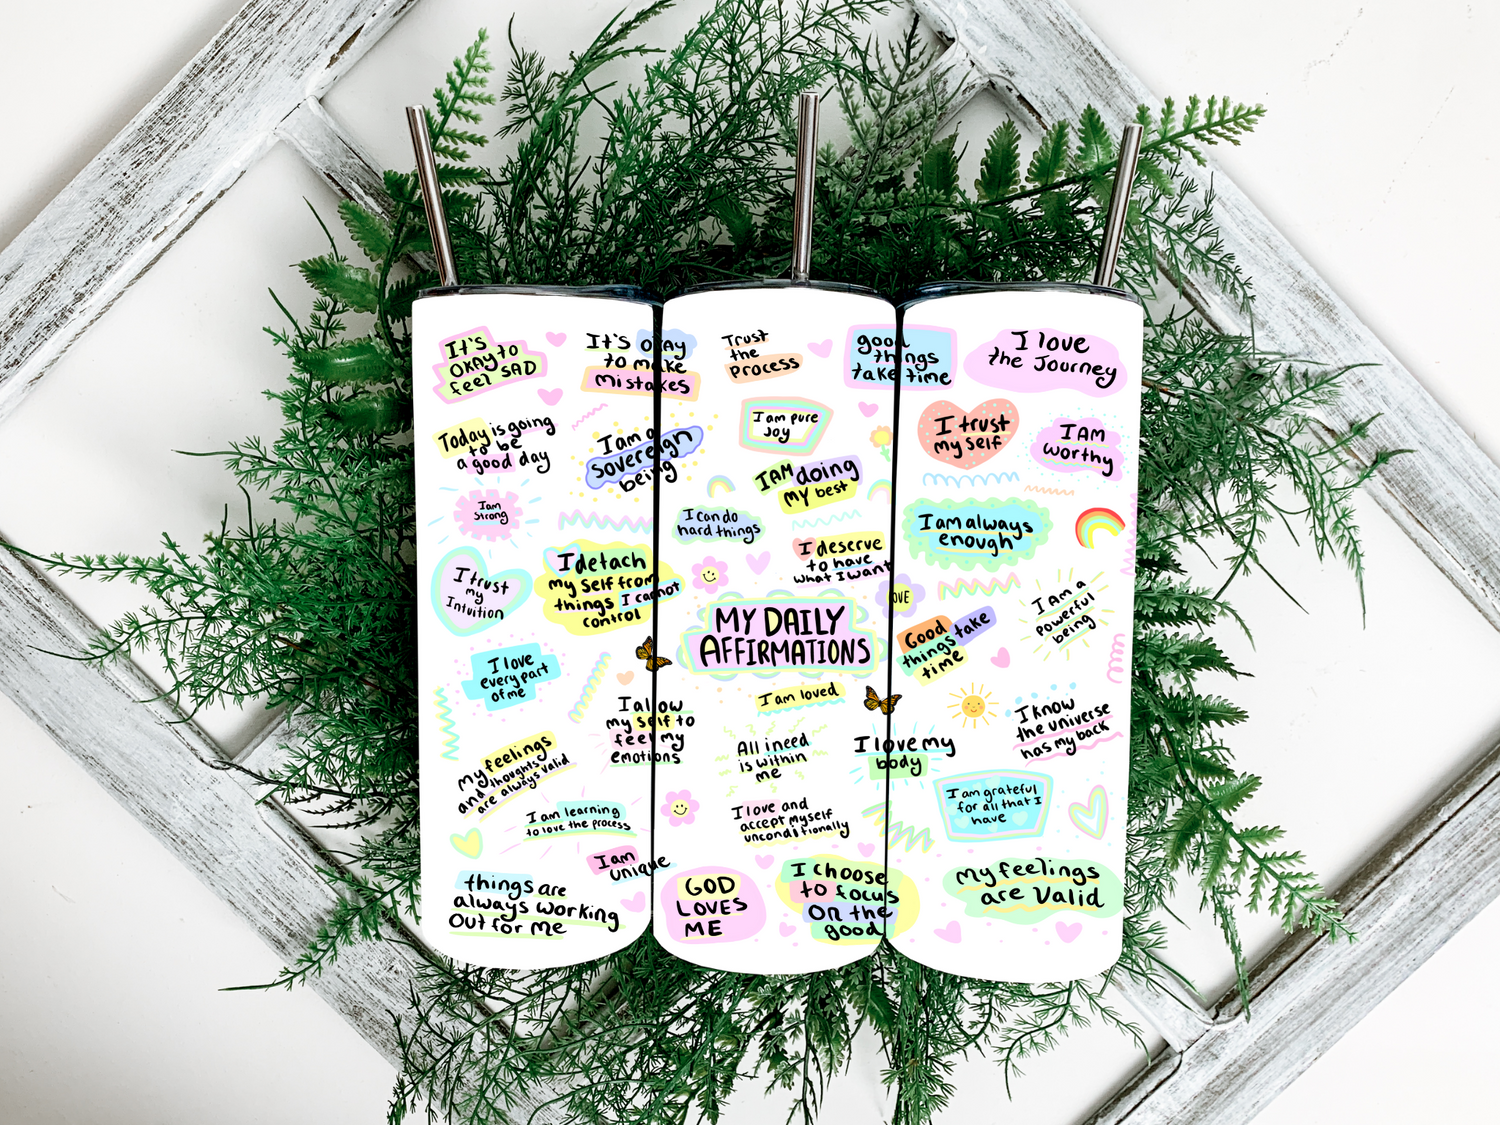 It's
okay to
feel SAD
It's okay
to make
mistakes
Trust
the
process
good
things
take time
I love
the Journey
Today is going
to be
a good day
I am a
sovereign
being
I am pure
Joy
I trust
my self
I AM
worthy
I AM doing
my best
I am
strong
I can do
hard things
I am always
enough
I trust
my
Intuition
I detach
my self from
things I cannot
control
I deserve
to have
what I want
OVE
I am a
powerful
being
MY DAILY
AFFIRMATIONS
Good
things take
time
I love
every part
of me
I am loved
I allow
my self to
feel my
emotions
I know
the universe
has my back
All i need
is within
me
I love my
body
my feelings
and thoughts
are always valid
I am learning
to love the process
I love and
accept myself
unconditionally
I am grateful
for all that I
have
I am
unique
things are
always working
out for me
GOD
LOVES
ME
I choose
to focus
on the
good
my feelings
are valid